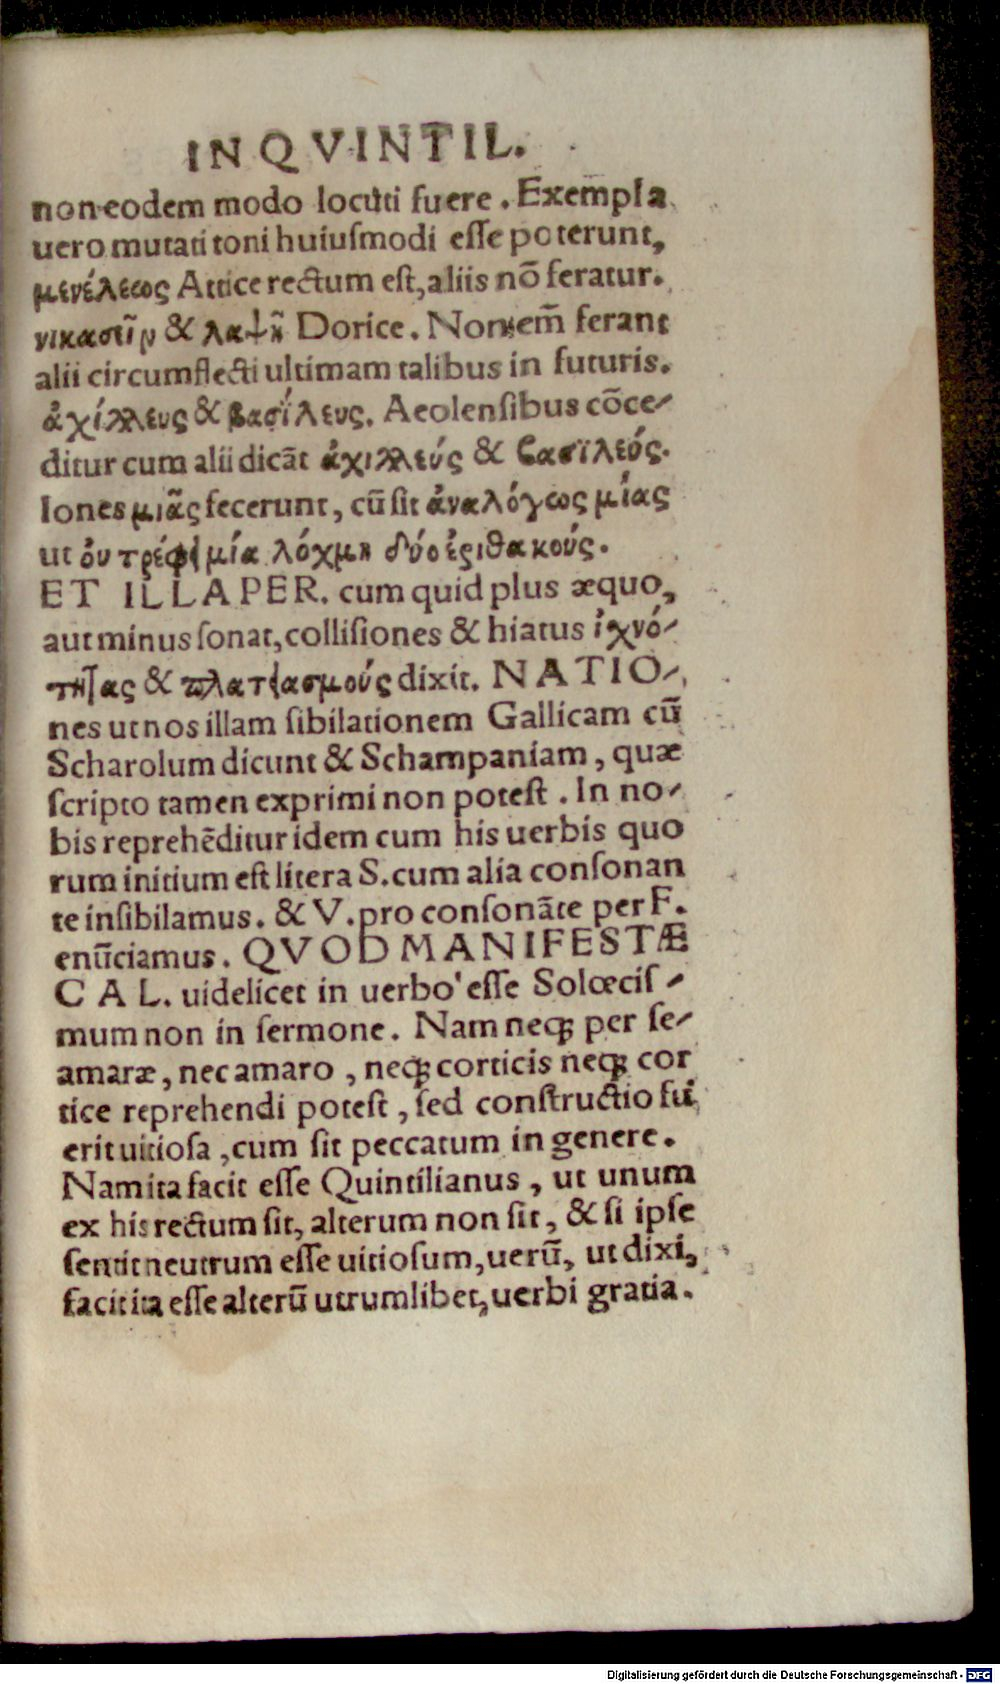 IN QVINTIL.
non eodem modo locuti fuere. Exempla
uero mutati toni huiusmodi esse poterunt,
μενέλεως Attice rectum est, aliis nō feratur.
& Dorice. Non em̄ ferant
alii circumflecti ultimam talibus in futuris.
ἀχίλλευς & βασίλευς. Aeolensibus cōce-
ditur cum alii dicāt ἀχιλλεύς & βασιλεός.
Iones μιᾶς fecerunt, cū sit ἀναλόγως μίας
ut ὀυ τρέφει μία λόχμη δύο ἐριθακούς.
ET ILLA PER. cum quid plus æquo,
aut minus sonat, collisiones & hiatus ἰχνό-
τηTας & πλατειασμούς dixit. NATIO-
nes ut nos illam sibilationem Gallicam cū
Scharolum dicunt & Schampaniam, quæ
scripto tamen exprimi non potest. In no-
bis reprehēditur idem cum his uerbis quo
rum initium est litera S. cum alia consonan
te insibilamus. & V. pro consonāte per F.
enūciamus. QVOD MANIFESTÆ
CAL. uidelicet in uerbo esse Solœcis-
mum non in sermone. Nam neqꝫ per se-
amaræ, nec amaro, neqꝫ corticis neqꝫ cor
tice reprehendi potest, sed constructio fu
erit uitiosa, cum sit peccatum in genere.
Nam ita facit esse Quintilianus, ut unum
ex his rectum sit, alterum non sit, & si ipse
sentit neutrum esse uitiosum, uerū, ut dixi,
facit ita esse alterū utrumlibet, uerbi gratia.
Digitalisierung gefördert durch die Deutsche Forschungsgemeinschaft - DFG